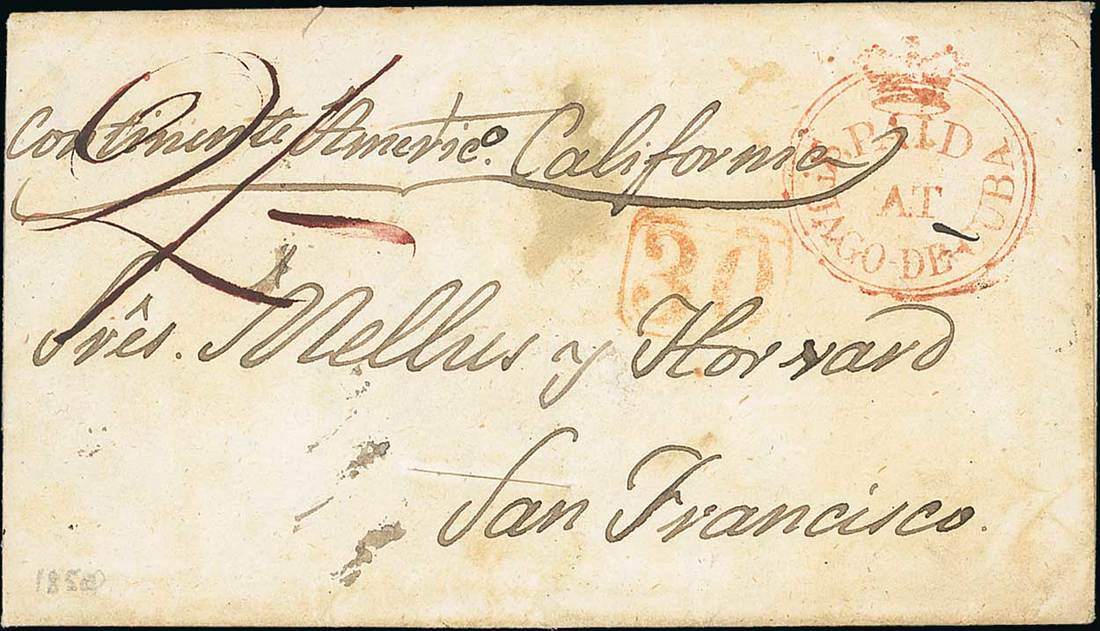 2/-
Continente Americo. California
PAID
AT
ST. IAGO-DE-CUBA
30
Srês. Mellus y Horward
San Francisco.